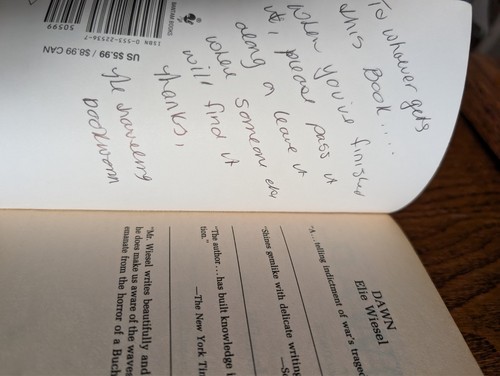 BANTAM BOOKS
ISBN 0-553-22536-7
50599
US $5.99 / $8.99 CAN
To whoever gets
this Book....
when you've finished
it, please pass it
along or leave it
where someone else
will find it
Thanks,
ye traveling
bookworm
DAWN
Elie Wiesel
"A...telling indictment of war's
"Shines gemlike with delicate writing
"The author...has built knowledge
tion."
—The New York
"Mr. Wiesel writes beautifully and
he does make us aware of the waves
emanate from the horror of a